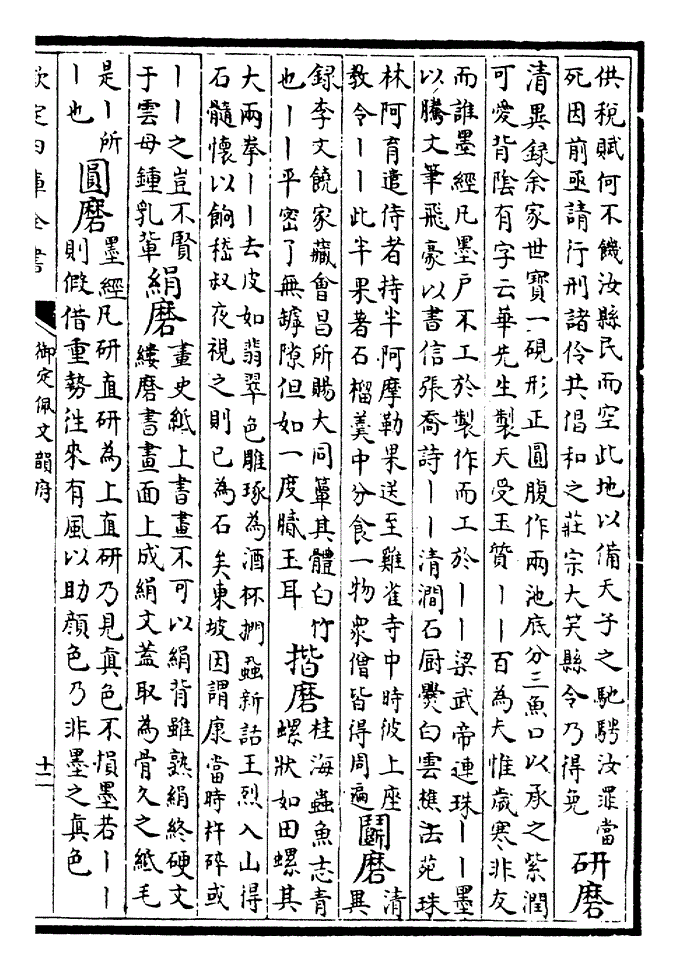 供稅賦何不饑汝縣民而空此地以備天子之馳騁汝罪當
死因前亟請行刑諸伶共倡和之莊宗大笑縣令乃得免
研磨
清異録余家世寶一硯形正圓腹作兩池底分三魚口以承之紫潤
可愛背陰有字云華先生製天受玉質丨丨百為夫惟歲寒非友
而誰墨經凡墨戶不工於製作而工於丨丨梁武帝連珠丨丨墨
以騰文筆飛豪以書信張喬詩丨丨清澗石厨爨白雲樵法苑珠
林阿育遣侍者持半阿摩勒果送至雞雀寺中時彼上座
教令丨丨此半果著石榴羹中分食一物衆僧皆得周遍
鬭磨
清
異
録李文饒家藏會昌所賜大同簟其體白竹
也丨丨平密了無罅隙但如一度膩玉耳
揩磨
桂海蟲魚志青
螺狀如田螺其
大兩拳丨丨去皮如翡翠色雕琢為酒杯捫蝨新話王烈入山得
石髓懷以餉嵇叔夜視之則已為石矣東坡因謂康當時杵碎或
丨丨之豈不賢
于雲母鍾乳軰
絹磨
畫史紙上書畫不可以絹背雖熟絹終硬文
縷磨書畫面上成絹文蓋取為骨久之紙毛
是丨所
丨也
圓磨
墨經凡研直研為上直研乃見真色不損墨若丨丨
則假借重勢往來有風以助顔色乃非墨之真色
欽定四庫全書
御定佩文韻府
十二